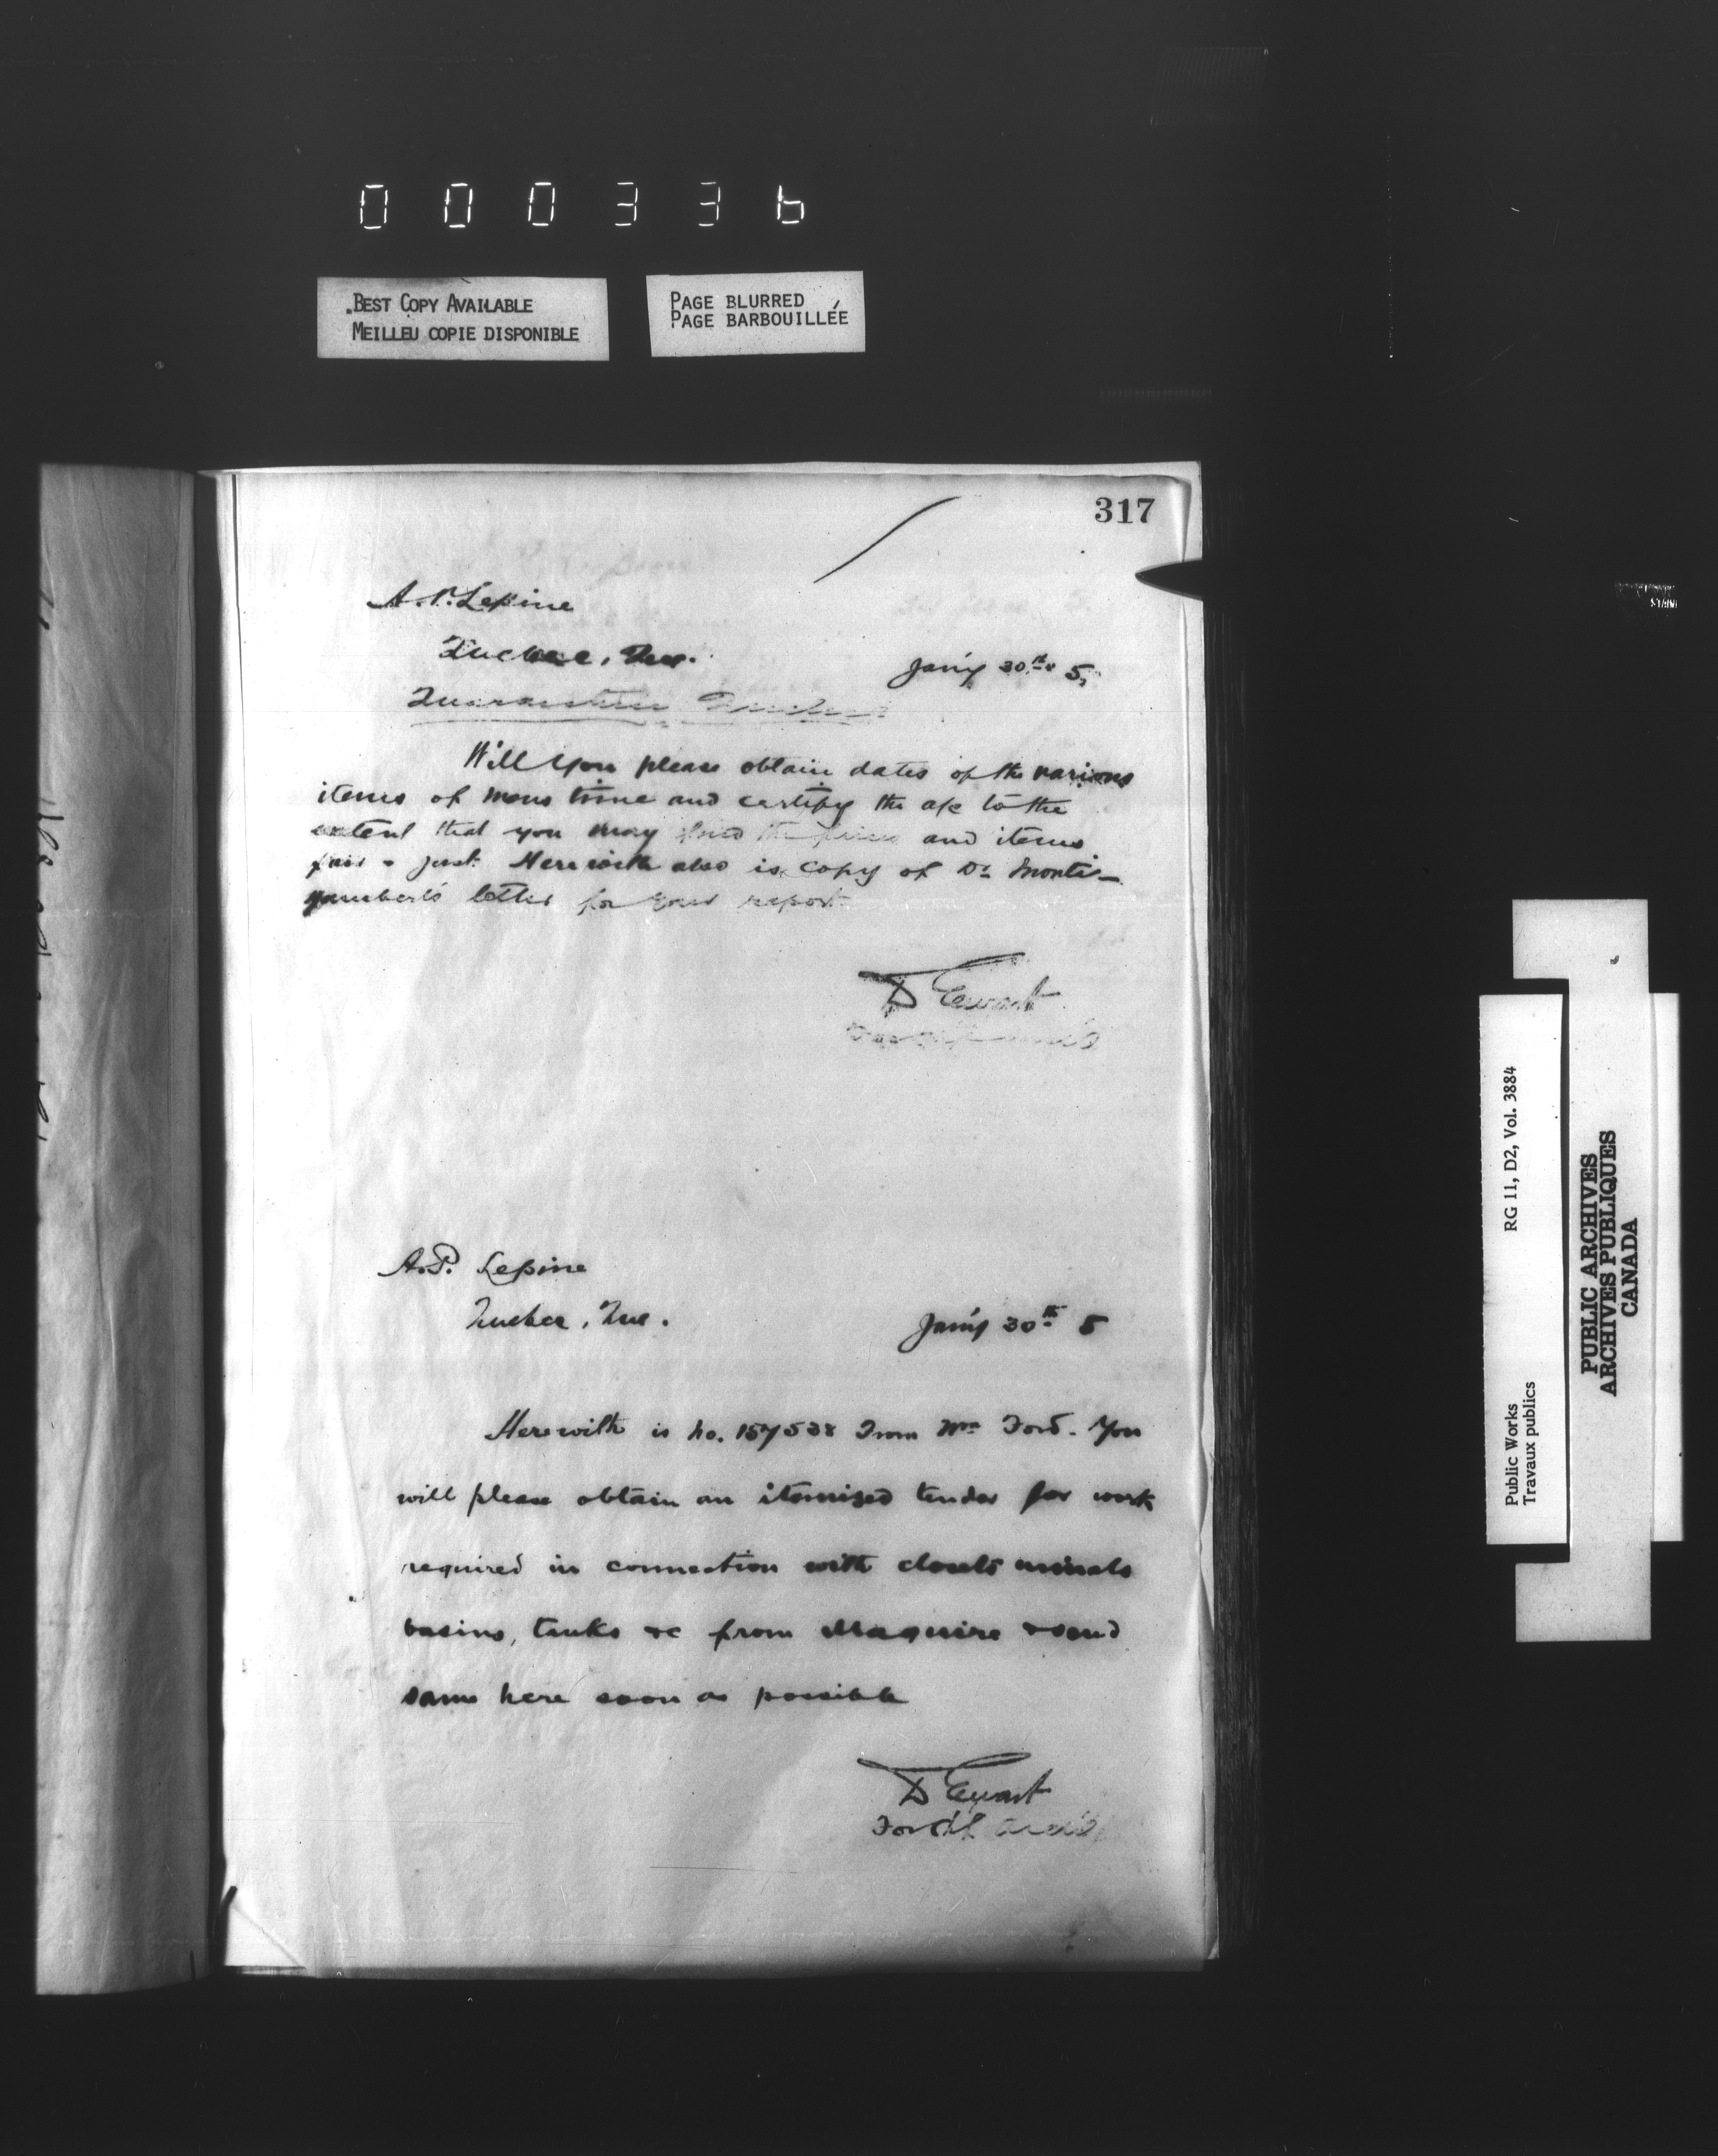 000336
BEST COPY AVAILABLE
MEILLEU COPIE DISPONIBLE
PAGE BLURRED
PAGE BARBOUILLÉE
317
A.P. Lepine
Quebec, Que.
Jan'y 30th 5
Quarantine
Will you please obtain dates of the various
items of mens time and certify the a/c to the
extent that you may find the prices and items
fair & just. Herewith also is copy of Dr. Monti-
zambert's letter for your report.
D Ewart
A.P. Lepine
Quebec, Que.
Jan'y 30th 5
Herewith is no. 157538 From Wm Ford. You
will please obtain an itemized tender for work
required in connection with closets urinals
basins, tanks &c from Maguire & send
same here soon as possible
D Ewart
For Ch Arch't
Public Works
Travaux publics
RG 11, D2, Vol. 3884
PUBLIC ARCHIVES
ARCHIVES PUBLIQUES
CANADA